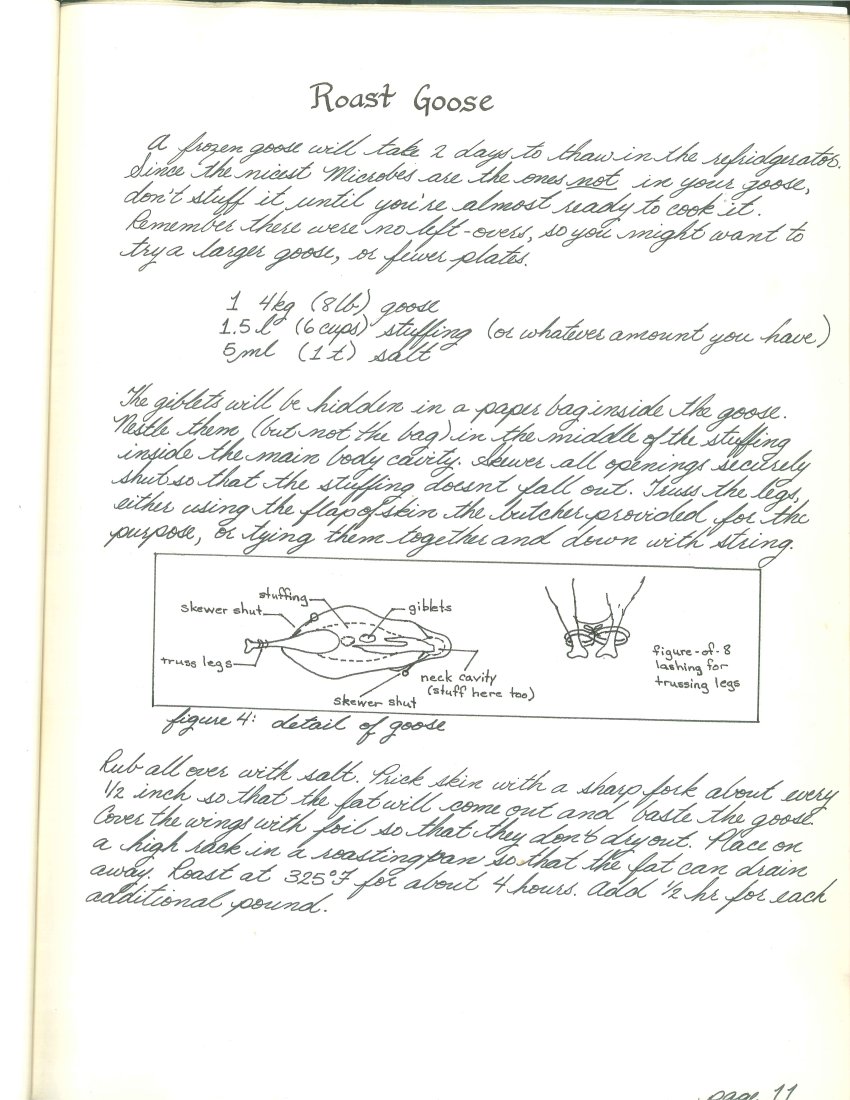 Roast Goose
A frozen goose will take 2 days to thaw in the refridgerator.
Since the nicest Microbes are the ones not in your goose,
don't stuff it until you're almost ready to cook it.
Remember there were no left-overs, so you might want to
try a larger goose, or fewer plates.
1 4kg (8lb) goose
1.5 l (6 cups) stuffing (or whatever amount you have)
5 ml (1 t) salt
The giblets will be hidden in a paper bag inside the goose.
Nestle them (but not the bag) in the middle of the stuffing
inside the main body cavity. Skewer all openings securely
shut so that the stuffing doesnt fall out. Truss the legs,
either using the flap of skin the butcher provided for the
purpose, or tying them together and down with string.
stuffing
skewer shut
giblets
truss legs
neck cavity
(stuff here too)
skewer shut
figure-of-8
lashing for
trussing legs
figure 4: detail of goose
Rub all over with salt. Prick skin with a sharp fork about every
1/2 inch so that the fat will come out and baste the goose.
Cover the wings with foil so that they don't dry out. Place on
a high rack in a roasting pan so that the fat can drain
away. Roast at 325°F for about 4 hours. Add 1/2 hr for each
additional pound.
page 11